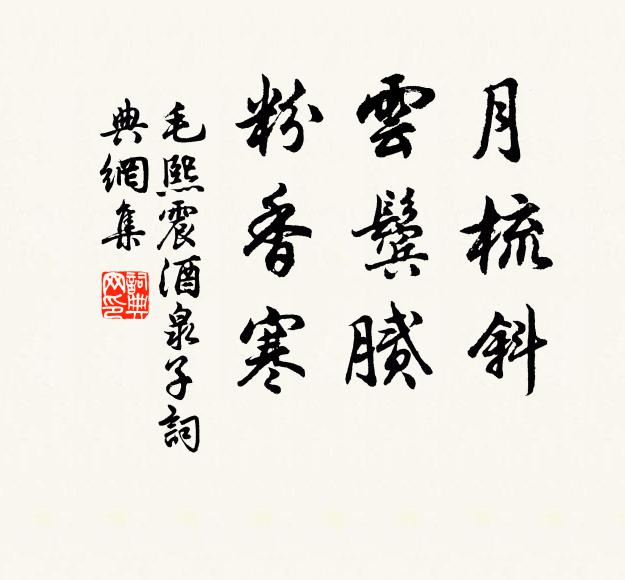 月梳斜
雲鬢膩
粉香寒
毛熙震酒泉子詞
典網集
詞典
网印